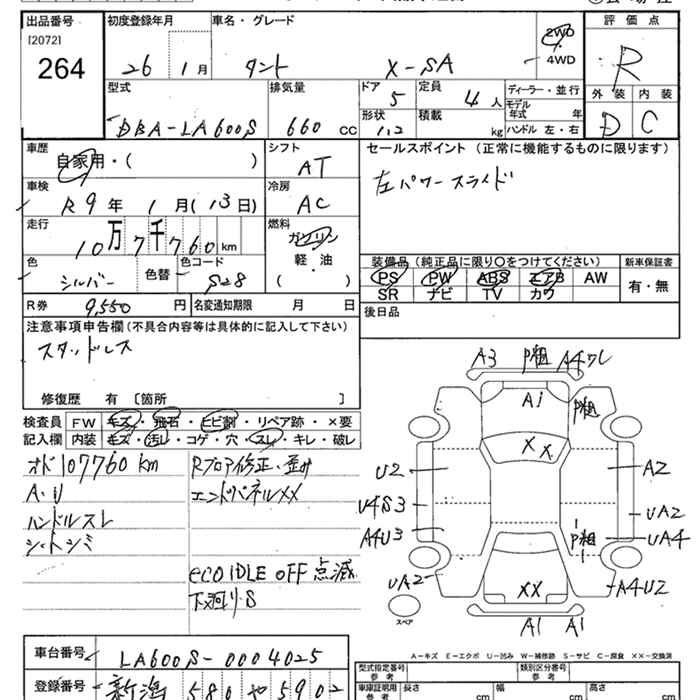 出品番号
[2072]
264
初度登録年月
26 1月
車名・グレード
タント X-SA
2WD
・
4WD
評価点
R
外装 内装
D C
型式
DBA-LA600S
排気量
660 cc
ドア
5
形状
定員
4人
積載
kg
ディーラー・並行
モデル年式 年
ハンドル 左・右
車歴
自家用・( )
シフト
AT
車検
R9年 1月(13日)
冷房
AC
走行
10万7千760km
燃料
ガソリン
軽・油
( )
色
シルバー
色替
色コード
S28
R券 9,550円
名変通知期限 月 日
セールスポイント (正常に機能するものに限ります)
左パワースライド
装備品 (純正品に限り○をつけてください)
PS PW ABS エアB AW
SR ナビ TV カワ
新車保証書
有・無
後日品
注意事項申告欄(不具合内容等は具体的に記入して下さい)
スタッドレス
修復歴 有 〔箇所 〕
検査員 FW キズ・飛石・ヒビ割・リペア跡・×要
記入欄 内装 キズ・汚レ・コゲ・穴・スレ・キレ・破レ
オド107760km
A・U
ハンドルスレ
シートシミ
Rフロア修正・歪み
エンドパネルXX
eco IDLE OFF 点滅
下廻りS
A3 P粗 A4ワレ
A1 P粗
X X
U2 A2
U4S3 UA2
A4U3 P粗 UA4
UA2 XX A4U2
スペア
A1 A1
A-キズ E-エクボ U-凹み W-補修跡 S-サビ C-腐食 XX-交換済
車台番号 LA600S-0004025
登録番号 新潟 580 や 5902
型式指定番号
参考
類別区分番号
参考
車庫証明用
参考
長さ
cm
幅
cm
高さ
cm